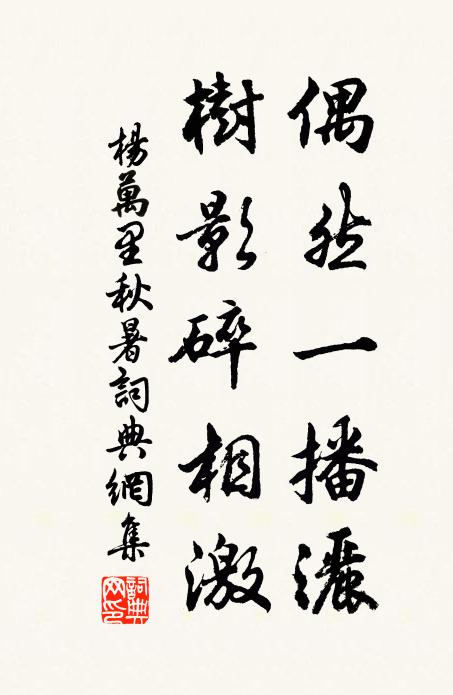 偶然一播灑
樹影碎相激
楊萬里秋暑詞典網集
詞典
网印